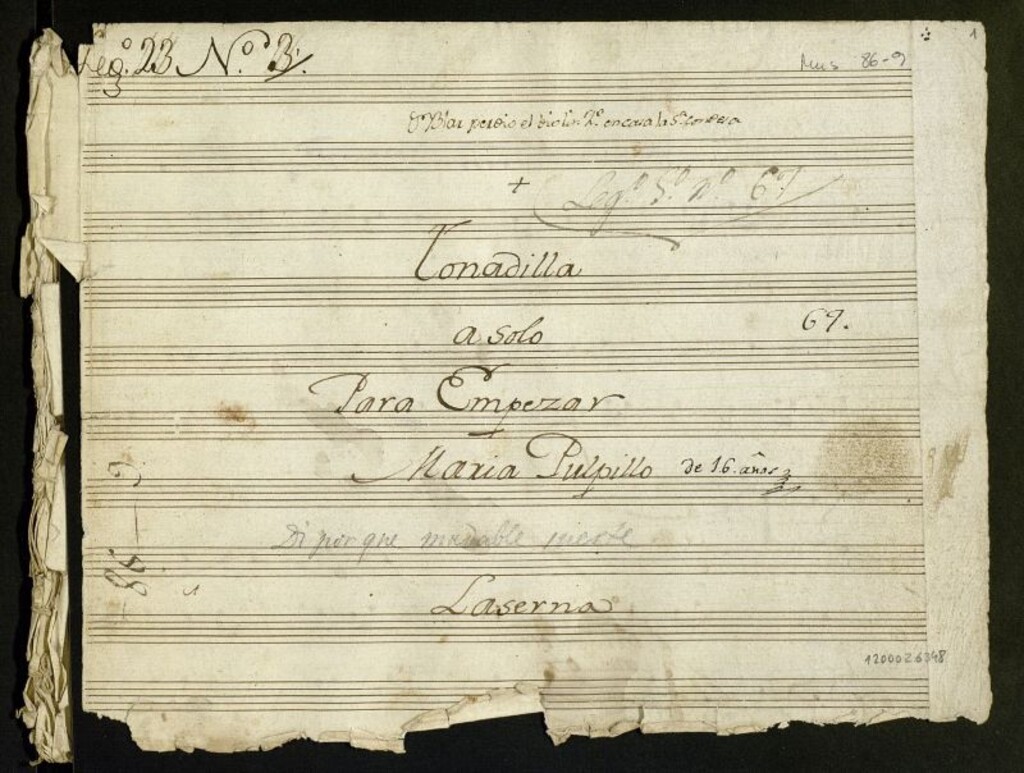 Leg.º 23 N.º 3.
1
Mus 86-9
Blas perdio el violin 2.º en casa la S.ª Condesa
+
Leg.º 5.º n.º 67
Tonadilla
a solo
67.
Para Empezar
Maria Pulpillo de 16. años
Di por que mudable suerte
Laserna
1200026348